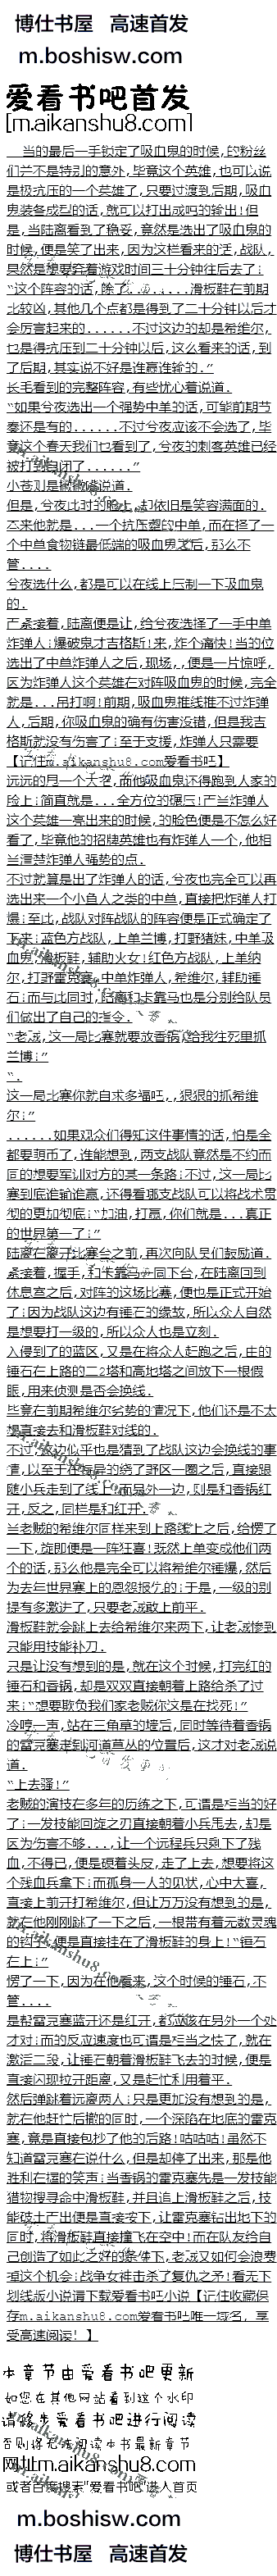 博仕书屋 高速首发
m.boshisw.com
爱看书吧首发
[m.aikanshu8.com]
当的最后一手锁定了吸血鬼的时候,的粉丝
们并不是特别的意外,毕竟这个英雄,也可以说
是极抗压的一个英雄了,只要过渡到后期,吸血
鬼装备成型的话,就可以打出成吨的输出!但
是,当陆离看到了稳妥,竟然是选出了吸血鬼的
时候,便是笑了出来,因为这样看来的话,战队,
果然是想要拿着游戏时间三十分钟往后去了!
"这个阵容的话,除了......滑板鞋在前期
比较凶,其他几个点都是得到了二十分钟以后才
会厉害起来的......不过这边的却是希维尔,
也是得抗压到二十分钟以后,这么看来的话,到
了后期,其实说不好是谁赢谁输的."
长毛看到的完整阵容,有些忧心着说道.
"如果兮夜选出一个强势中单的话,可能前期节
奏还是有的......不过兮夜应该不会选了,毕
竟这个春天我们也看到了,兮夜的刺客英雄已经
被打自闭了......"
但是,兮夜此时的脸上,却依旧是笑容满面的.
本来他就是...一个抗压型的中单,而在拿了一
个中单食物链最低端的吸血鬼之后,那么不
管....
兮夜选什么,都是可以在线上压制一下吸血鬼
的.
紧接着,陆离便是让,给兮夜选择了一手中单
炸弹人!爆破鬼才吉格斯!来,炸个痛快!当的位
选出了中单炸弹人之后,现场,,便是一片惊呼,
因为炸弹人这个英雄在对阵吸血鬼的时候,完全
就是...吊打啊!前期,吸血鬼推线推不过炸弹
人,后期,你吸血鬼的确有伤害没错,但是我吉
格斯就没有伤害了!至于支援,炸弹人只需要
【记住m.aikanshu8.com爱看书吧】
远远的甩一个大招,而他吸血鬼还得跑到人家的
脸上!简直就是...全方位的碾压!当炸弹人
这个英雄一亮出来的时候,的脸色便是不怎么好
看了,毕竟他的招牌英雄也有炸弹人一个,他相
当清楚炸弹人强势的点.
不过就算是出了炸弹人的话,兮夜也完全可以再
选出来一个小鱼人之类的中单,直接把炸弹人打
爆!至此,战队对阵战队的阵容便是正式确定了
下来!蓝色方战队,上单兰博,打野猪妹,中单吸
血鬼,滑板鞋,辅助火女!红色方战队,上单纳
尔,打野雷克塞,中单炸弹人,希维尔,辅助锤
石!而与此同时,陆离和卡靠马也是分别给队员
们做出了自己的指令.
"老贼,这一局比赛就要放香锅,给我往死里抓
兰博!"
".
这一局比赛你就自求多福吧,,狠狠的抓希维
尔!"
......如果观众们得知这件事情的话,怕是全
都要萌币了,谁能想到,两支战队竟然是不约而
同的想要军训对方的某一条路!不过,这一局比
赛到底谁输谁赢,还得看哪支战队可以将战术贯
彻的更加彻底!"加油,打赢,你们就是...真正
的世界第一了!"
陆离在离开比赛台之前,再次向队员们鼓励道.
紧接着,握手,和卡靠马一同下台,在陆离回到
休息室之后,对阵的这场比赛,便也是正式开始
了!因为战队这边有锤石的缘故,所以众人自然
是想要打一级的,所以众人也是立刻.
入侵到了的蓝区,又是在将众人赶跑之后,由的
锤石在上路的二2塔和高地塔之间放下一根假
眼,用来侦测是否会换线.
毕竟在前期希维尔劣势的情况下,他们还是不太
想直接去和滑板鞋对线的.
不过,这边似乎也是猜到了战队这边会换线的事
情,以至于在象征的绕了野区一圈之后,直接跟
随小兵走到了线上!而另外一边,则是和香锅红
开,反之,同样是和红开.
当老贼的希维尔同样来到上路线上之后,给愣了
一下,旋即便是一阵狂喜!既然上单变成他们两
个的话,那么他是完全可以将希维尔锤爆,然后
为去年世界赛上的恩怨报仇的!于是,一级的别
提有多激进了,只要老贼敢上前平.
滑板鞋就会跳上去给希维尔来两下,让老贼惨到
只能用技能补刀.
只是让没有想到的是,就在这个时候,打完红的
锤石和香锅,却是双双直接朝着上路给杀了过
来!"想要欺负我们家老贼你这是在找死!"
冷哼一声,站在三角草的墙后,同时等待着香锅
的雷克塞走到河道草丛的位置后,这才对老贼说
道.
"上去骚!"
老贼的演技在多年的历练之下,可谓是相当的好
了!一发技能回旋之刃直接朝着小兵甩去,却是
因为伤害不够...,让一个远程兵只剩下了残
血,不得已,便是硬着头皮,走了上去,想要将这
个残血兵拿下!而孤身一人的见状,心中大喜,
直接上前开打希维尔,但让万万没有想到的是,
就在他刚刚跳了一下之后,一根带有着无数灵魂
的钩子,便是直接挂在了滑板鞋的身上!"锤石
在上!"
愣了一下,因为在他看来,这个时候的锤石,不
管....
是帮雷克塞蓝开还是红开,都应该在另外一个处
才对!而的反应速度也可谓是相当之快了,就在
激活二段,让锤石朝着滑板鞋飞去的时候,便是
直接闪现拉开距离,又是赶忙利用着平.
然后弹跳着远离两人!只是更加没有想到的是,
就在他赶忙后撤的同时,一个深陷在地底的雷克
塞,竟是直接包抄了他的后路!咕咕咕!虽然不
知道雷克塞在说什么,但是却停了出来,那是他
胜利在握的笑声!当香锅的雷克塞先是一发技能
猎物搜寻命中滑板鞋,并且追上滑板鞋之后,技
能破土产出便是直接按下,让雷克塞钻出地下的
同时,将滑板鞋直接撞飞在空中!而在队友给自
己创造了如此之好的条件下,老贼又如何会浪费
掉这个机会!战争女神击杀了复仇之矛!看无下
划线版小说请下载爱看书吧小说【记住收藏保
存m.aikanshu8.com爱看书吧唯一域名,享
受高速阅读!】
本章节由爱看书吧更新
如您在其他网站看到这个水印
请移步爱看书吧进行阅读
否则将无法阅读本书最新章节
网址m.aikanshu8.com
或者百度搜索"爱看书吧"进入首页
m.boshisw.com
博仕书屋 高速首发